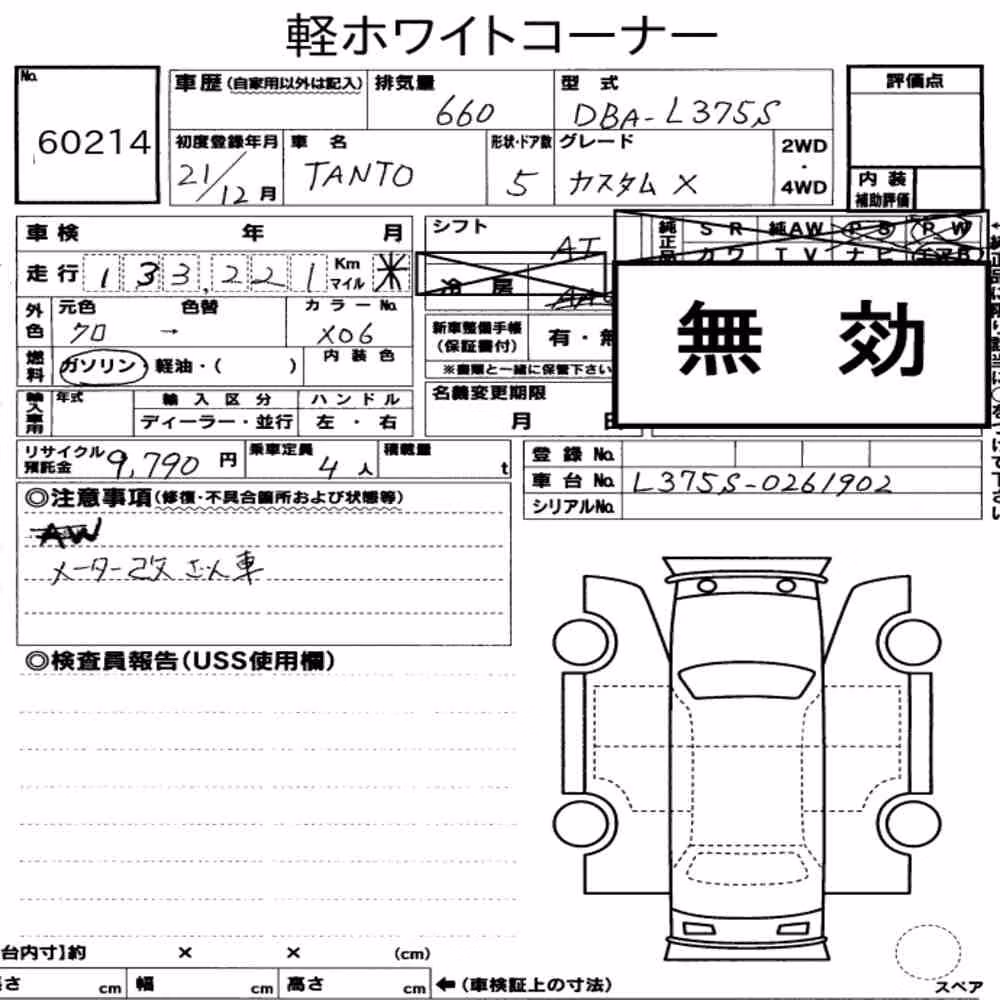 軽ホワイトコーナー
No.
60214
車歴(自家用以外は記入)
排気量
660
型 式
DBA-L375S
評価点
初度登録年月
21/12月
車 名
TANTO
形状・ドア数
5
グレード
カスタム X
2WD
・
4WD
内 装
補助評価
車検 年 月
シフト
AT
純正品
SR 純AW PS PW
カワ TV ナビ エアB
走行 133,221 Km マイル *
冷 房
外色
元色 色替
クロ →
カラーNo.
X06
新車整備手帳
(保証書付)
有・無
※書類と一緒に保管下さい
無 効
燃料
ガソリン・軽油・( )
内装色
輸入車用
年式
輸入区分
ディーラー・並行
ハンドル
左・右
名義変更期限
月 日
リサイクル
預託金
9,790 円
乗車定員
4 人
積載量
t
登録 No.
車台 No. L375S-0261902
シリアルNo.
◎注意事項(修復・不具合箇所および状態等)
AW
メーター改ざん車
◎検査員報告(USS使用欄)
台内寸】約 × × (cm)
さ cm 幅 cm 高さ cm ←(車検証上の寸法)
スペア